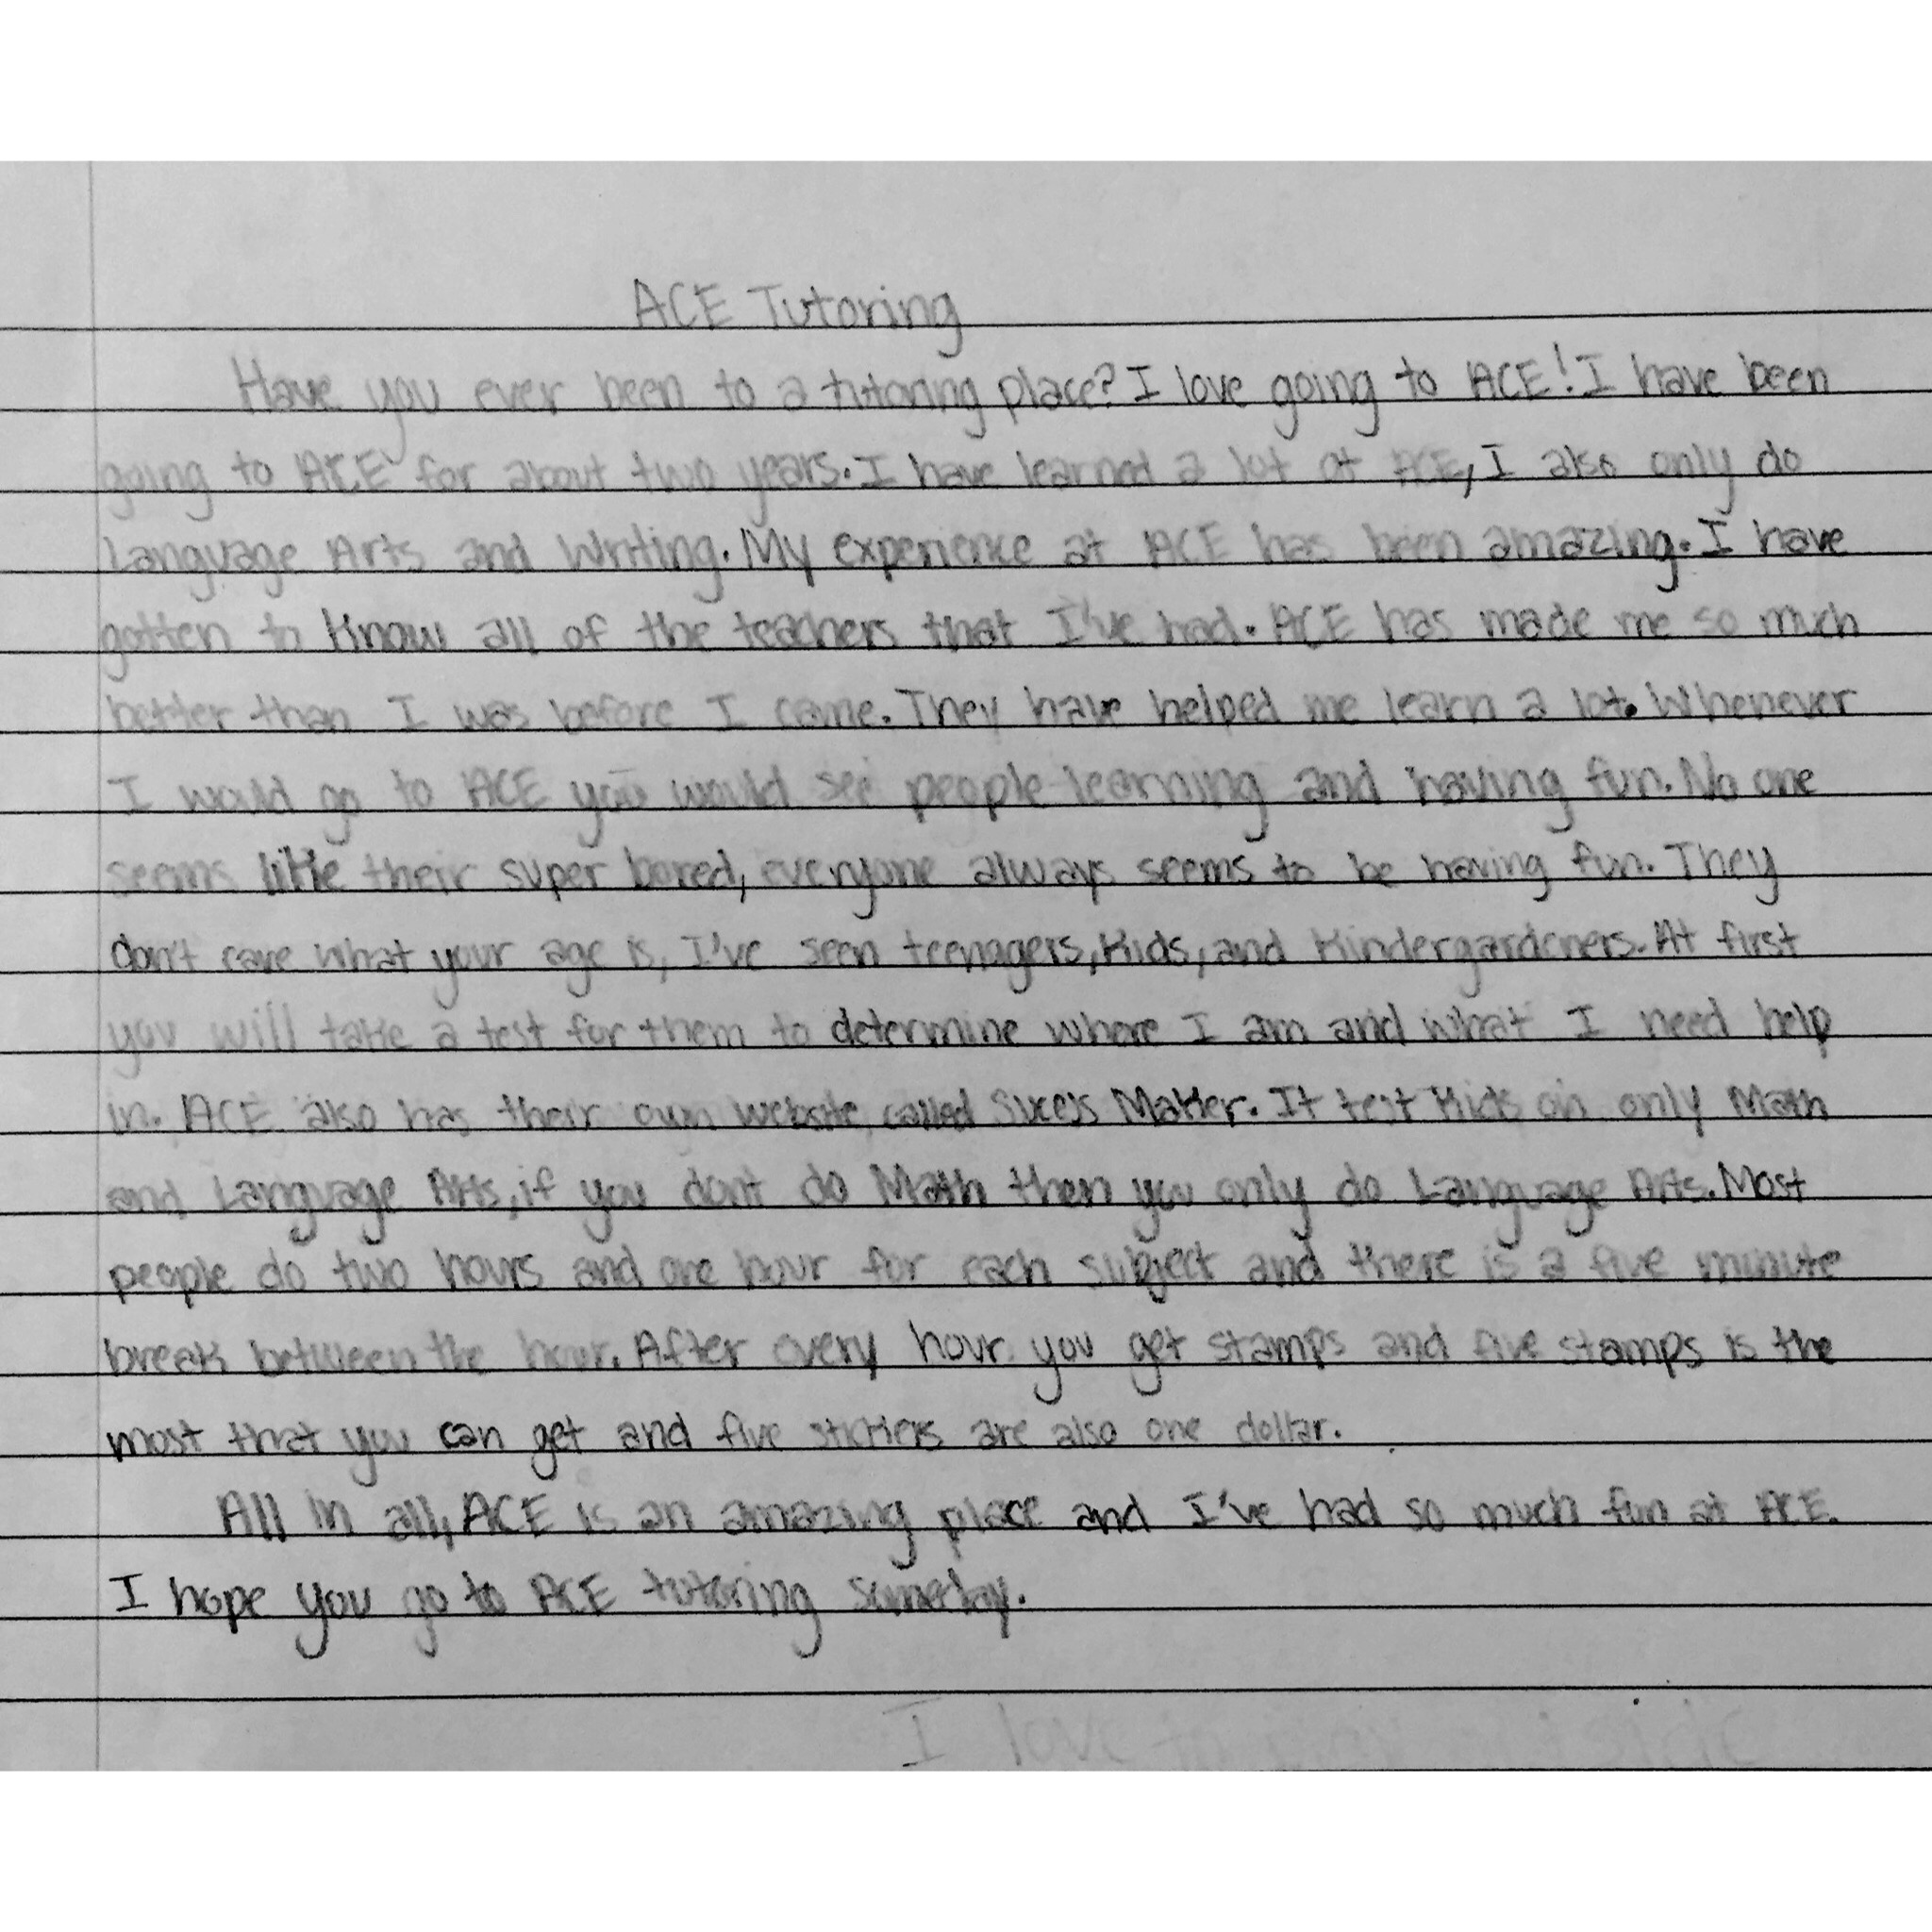 ACE Tutoring
Have you ever been to a tutoring place? I love going to ACE! I have been
going to ACE for about two years. I have learned a lot at ACE, I also only do
Language Arts and Writing. My experience at ACE has been amazing. I have
gotten to know all of the teachers that I've had. ACE has made me so much
better than I was before I came. They have helped me learn a lot. Whenever
I would go to ACE you would see people learning and having fun. No one
seems like their super bored, everyone always seems to be having fun. They
don't care what your age is, I've seen teenagers, kids, and kindergardeners. At first
you will take a test for them to determine where I am and what I need help
in. ACE also has their own website, called Sucess Maker. It test kids on only Math
and Language Arts, if you dont do Math then you only do Language Arts. Most
people do two hours and one hour for each subject and there is a five minute
break between the hour. After every hour you get stamps and five stamps is the
most that you can get and five stickers are also one dollar.
All in all, ACE is an amazing place and I've had so much fun at ACE.
I hope you go to ACE tutoring someday.
I love